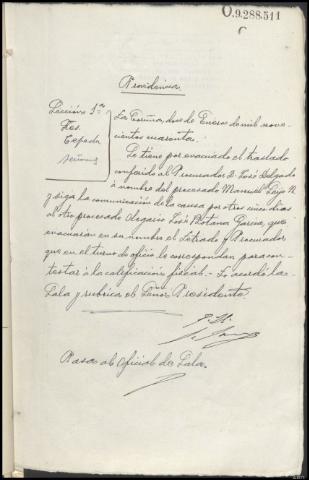 O.9.288.511
Providencia
Sección 1ª
Tes.
Espada
La Coruña, dos de Enero de mil nove-
cientos cuarenta.
Se tiene por evacuado el traslado
conferido al Procurador D. José Delgado
á nombre del procesado Manuel
y siga la comunicación de la causa por otros cinco dias
al otro procesado Olegario José Pestana Garcia, que
evacuarán en su nombre el Letrado y Procurador
que en el turno de oficio le correspondan para con-
testar á la calificación fiscal.- Lo acordó la
Sala y rubrica el Señor Presidente.
Pasa al Oficial de Sala.